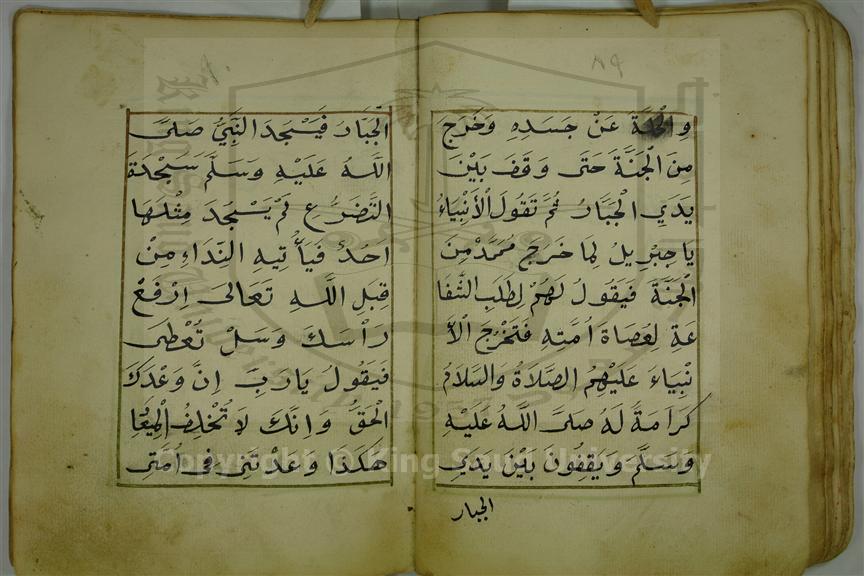 ٨٩
وَالْحُلَّةَ عَنْ جَسَدِهِ وَخَرَجَ
مِنَ الْجَنَّةَ حَتَى وَقَفَ بَيْنَ
يَدَيِ الْجَبَّارُ ثُمَّ تَقُولَ الْأَنْبِيَاءُ
يَاجِبْرِيلُ لِمَا خَرَجَ مُحَمَّدْ مِنَ
الْجَنَّةَ فَيَقُولُ لَهُمْ لِطَلَبِ الشَّفَا
عَةِ لِعَصَاةَ اُمَّتِهِ فَتَخْرُجُ الْأَ
نْبِيَاءَ عَلَيْهِمُ الصَّلَاةُ وَالسَّلَامُ
كَرَامَةً لَهُ صَلَىَّ اللَّهُ عَلَيْهِ
وَسَلَّمَ وَيَقِفُونَ بَيْنَ يَدَيِ
الجبار
الْجَبَّارُ فَيَسْجَدَ النَّبِيُّ صَلَىَّ
اللَّهُ عَلَيْهِ وَسَلَّمَ سَجْدَةَ
التَّضَرُّعِ لَمْ يَسْجَدَ مِثْلَهَا
اَحَدٌ فَيَأْتِيهِ النِّدَاءِ مِنْ
قِبَلِ اللَّهِ تَعَالَى اِرْفَعْ
رَأْسَكَ وَسَلْ تُعْطَى
فَيَقُولُ يَارَبِّ اِنَّ وَعْدَكَ
الْحَقُّ وَاِنَّكَ لَا تُخْلِفُ الْمِيعَا
هَكَذَا وَعَدْتَنِى فِى اُمَّتِى
Copyright © King Saud University